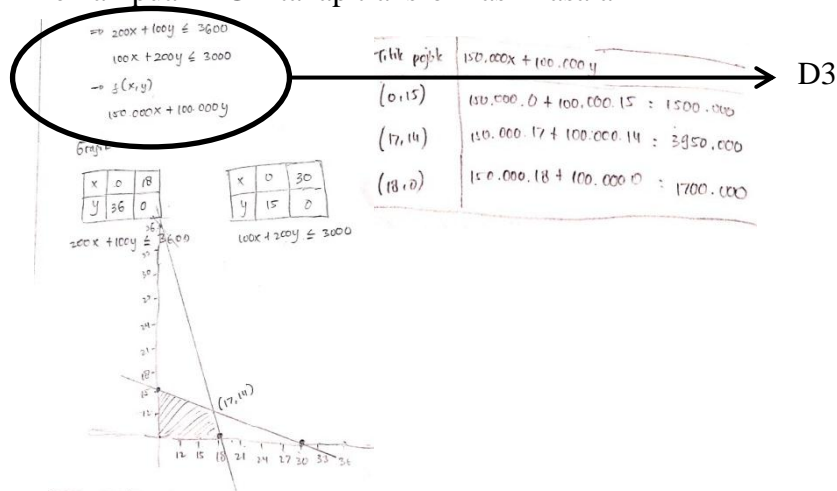 => 200x + 100y ≤ 3600
100x + 200y ≤ 3000
-> f(x,y)
150.000x + 100.000y
D3
Titik pojok | 150.000x + 100.000y
(0,15) | 150.000.0 + 100.000.15 : 1500.000
(17,14) | 150.000.17 + 100.000.14 : 3950.000
(18,0) | 150.000.18 + 100.000 0 : 1700.000
Grafik
x 0 18
y 36 0
200x + 100y ≤ 3600
x 0 30
y 15 0
100x + 200y ≤ 3000
36
33
30
27
24
21
18
15
12
(17,14)
12 15 18 21 24 27 30 33 36